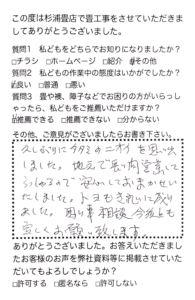 この度は杉浦畳店で畳工事をさせていただきま
してありがとうございました。
質問1 私どもをどちらでお知りになりましたか？
□チラシ □ホームページ □紹介 その他
質問2 私どもの作業中の態度はいかがでしたか？
良い □普通 □悪い
質問3 畳や襖、障子などでお困りの方がいらっし
ゃったら、私どもをご推薦いただけますか？
推薦できる □推薦できない □分からない
その他、ご意見がございましたらお書き下さい。
久しぶりにタタミのニオイを思い出
しました。地元で長い間営業して
いるので安心しておまかせい
たしました。
ました。困り事相談 今後とも
宜しくお願い致します
ありがとうございました。お答えいただきまし
たお客様のお声を弊社資料等に掲載させていた
だいてもよろしでしょうか？
□許可する □匿名なら □許可しない